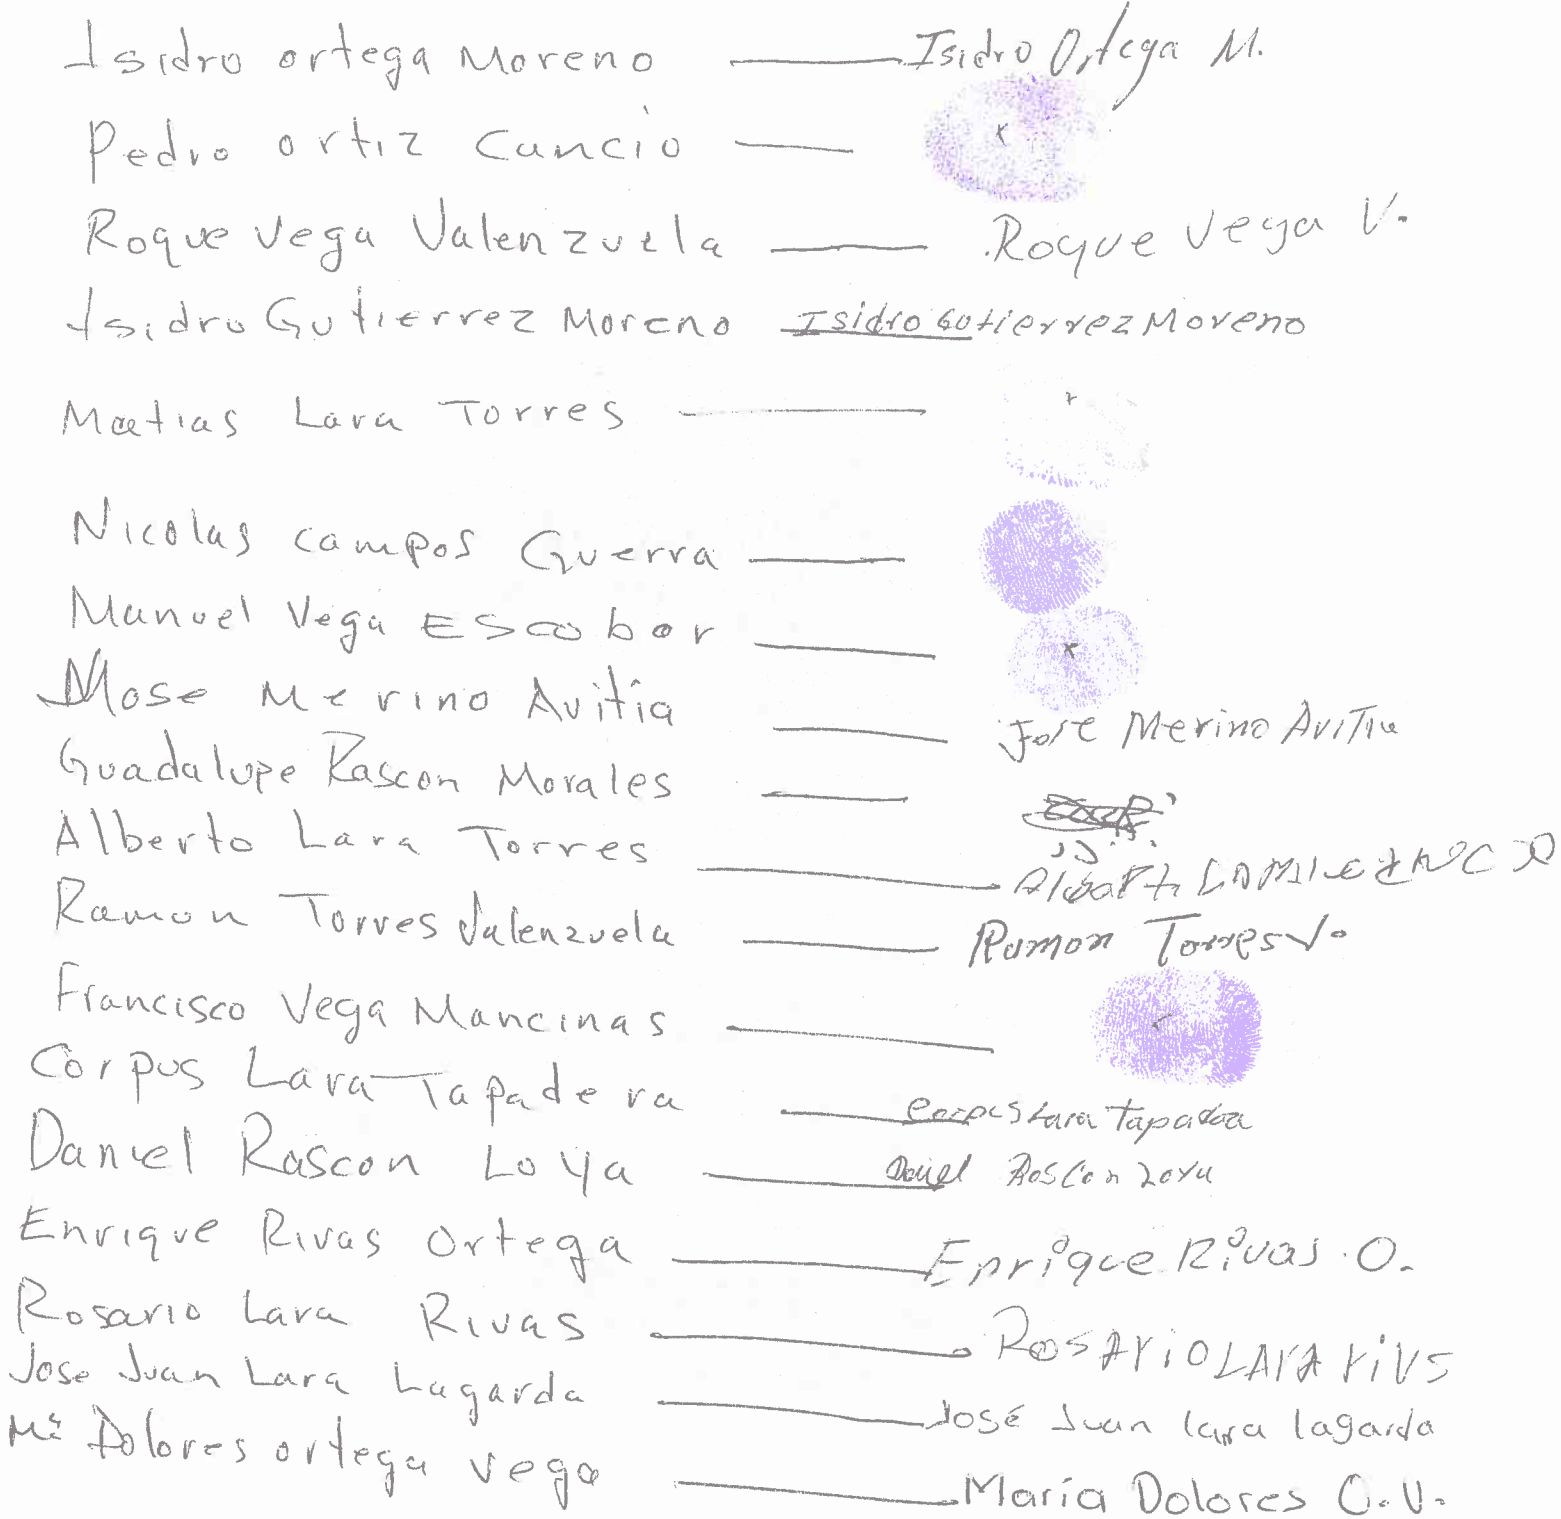 Isidro ortega Moreno Isidro Ortega M.
Pedro ortiz Cancio x
Roque Vega Valenzuela Roque Vega V.
Isidro Gutierrez Moreno Isidro Gutierrez Moreno
Matias Lara Torres
Nicolas campos Guerra
Manuel Vega Escobar x
Mose Merino Avitia Jose Merino Avitia
Guadalupe Rascon Morales
Alberto Lara Torres
Ramon Torres Valenzuela Ramon Torres V.
Francisco Vega Mancinas
Corpus Lara Tapadera Corpus Lara Tapadera
Daniel Rascon Loya Daniel Rascon Loya
Enrique Rivas Ortega Enrique Rivas O.
Rosario Lara Rivas Rosario LArA rivs
Jose Juan Lara Lagarda José Juan lara lagarda
Ma Dolores ortega Vega María Dolores O.V.